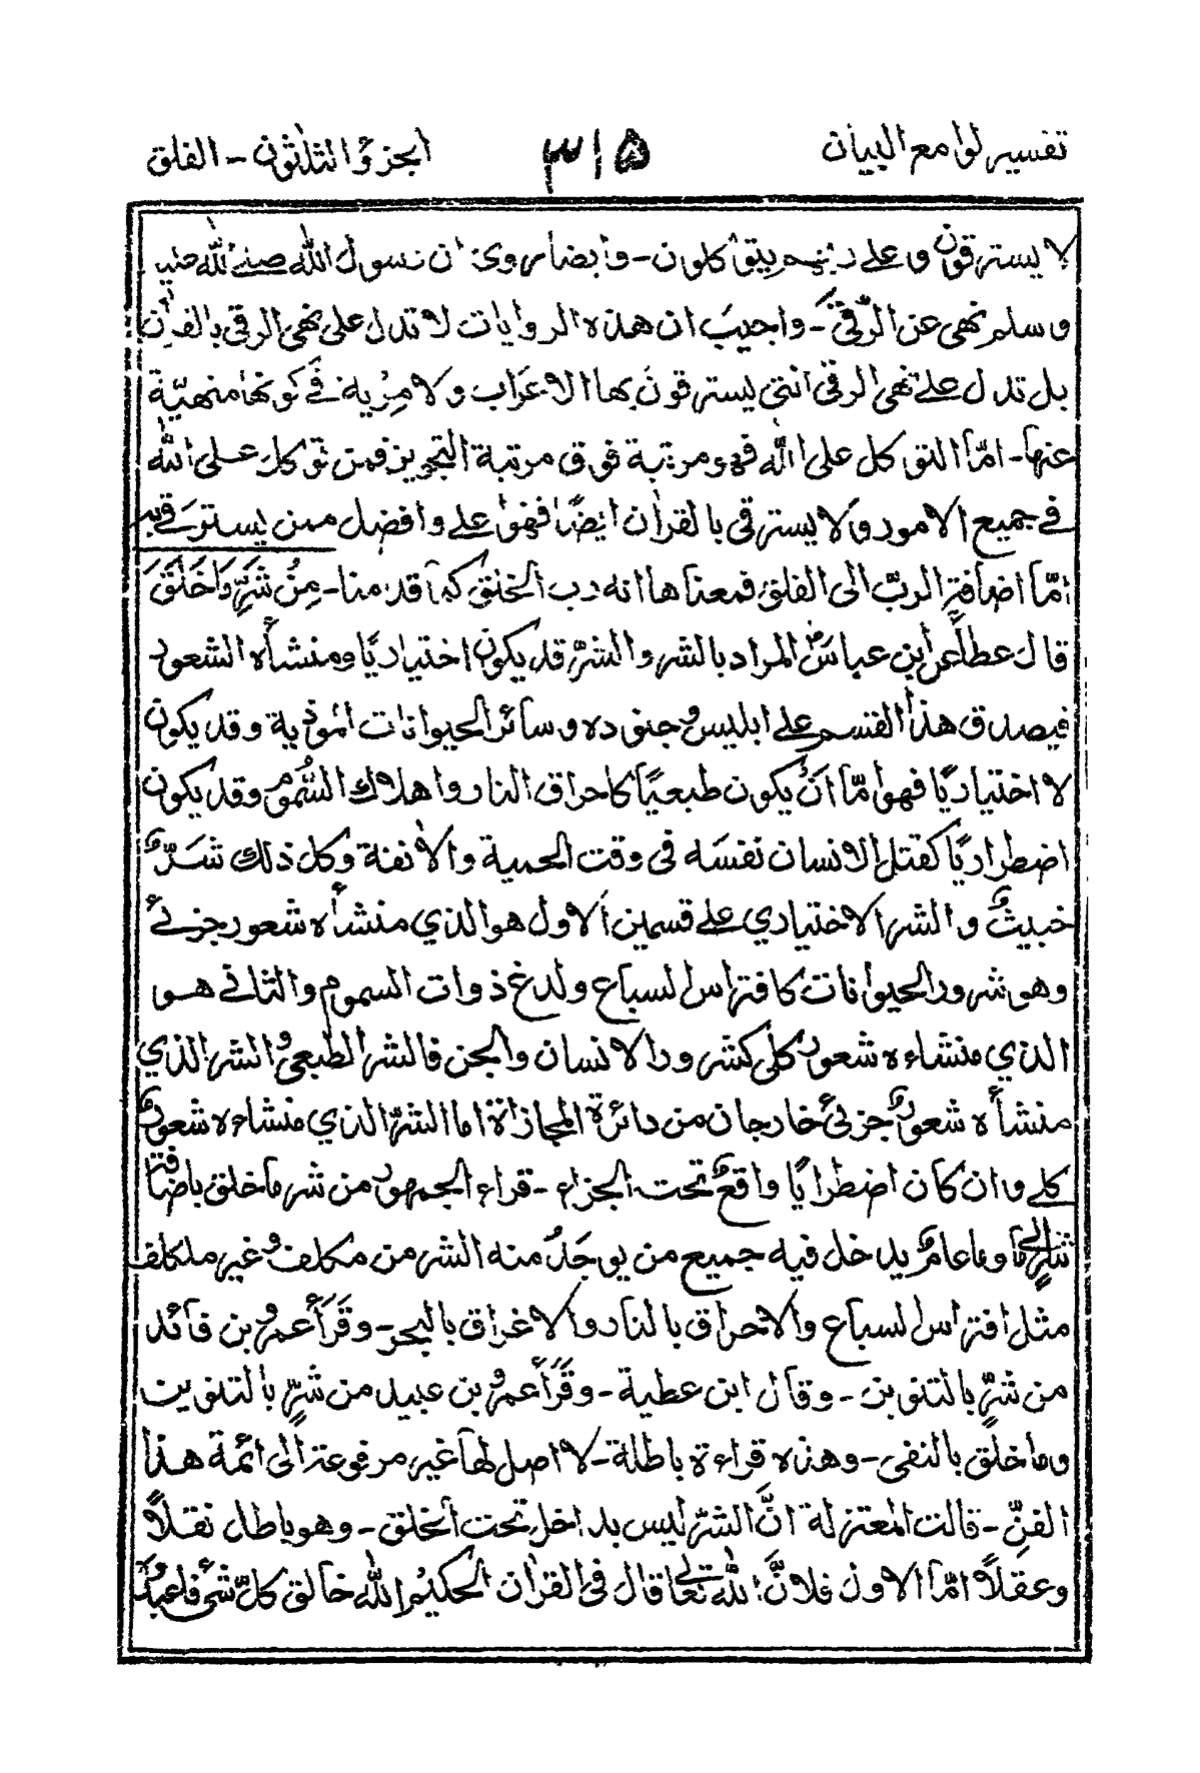 تفسير لوامع البيان ۳۱۵ الجزء الثلثون - الفلق
لا يسترقون وعلى ربهم يتوكلون - وايضا روى ان رسول الله صلى الله عليه
وسلم نهى عن الرُّقى - واجيبَ ان هذه الروايات لا تدل على نهى الرقى بالقراٰن
بل تدل على نهى الرقى التى يسترقون بها الاعراب ولا مِرْية فى كونها منهيّة
عنها - امّا التوكل على الله فهو مرتبة فوق مرتبة التجويز فمن توكل على الله
فى جميع الامور ولا يسترقى بالقراٰن ايضًا فهو اعلى وافضل ممن يسترقى به
امّا اضافة الربّ الى الفلق فمعناها انه رب الخلق كما قدمنا - مِنْ شَرِّ مَا خَلَقَ
قال عطاء عن ابن عباسؓ المراد بالشر والشرّ قد يكون اختياريًا ومنشأه الشعور
فيصدق هذا القسم على ابليس وجنوده وسائر الحيوانات الموذية وقد يكون
لا اختياريًا فهو امّا اَنْ يكون طبعيًا كاحراق النار واهلاك السُّموم وقد يكون
اضطراريًا كقتل الانسان نفسَه فى وقت الحمية والاٰنفة وكل ذلك شَرٌّ
خبيثٌ والشر الاختياري على قسمين اَلاول هو الذي منشأه شعور جزئى
وهو شرور الحيوانات كافتراس السباع ولدغ ذوات السموم والثانى هو
الذي منشاءه شعور كلى كشرور الانسان والجن فالشر الطبعىُّ والشر الذي
منشأه شعورٌ جزئىٌ خارجان من دائرة المجازاة اما الشرّ الذي منشاءه شعورٌ
كلى وان كان اضطرايًا واقعٌ تحت الجزاء - قراء الجمهور من شر ما خلق باضافة
شرٍّ الى ما وما عامٌ يدخل فيه جميع من يوجَدُ منه الشر من مكلف وغير ملكلف
مثل افتراس السباع والاحراق بالنار والاغراق بالبحر - وقَرَأَ عمرو بن فائد
من شرٍّ بالتنوين - وقال ابن عطية - وقَرَأَ عمرو بن عبيد من شرٍّ بالتنوين
وما خلق بالنفى - وهذه قراءة باطلة - لا اصل لها غير مرفوعة الى ائمة هذا
الفنِّ - قالت المعتزلة انَّ الشرّ ليس بداخل تحت الخلق - وهو باطل نقلاً
وعقلاً امّا الاول فلانَّ الله تعالى قال فى القراٰن الحكيم الله خالق كلّ شئ فاعبدُ